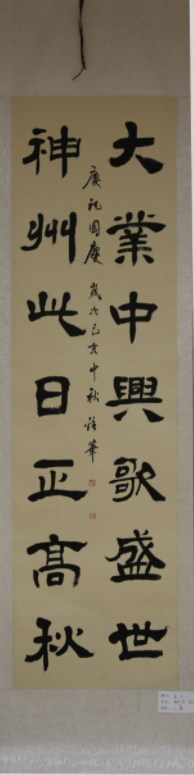 大業中興歌盛世
神州此日正高秋
慶祝國慶 歲次己亥中秋